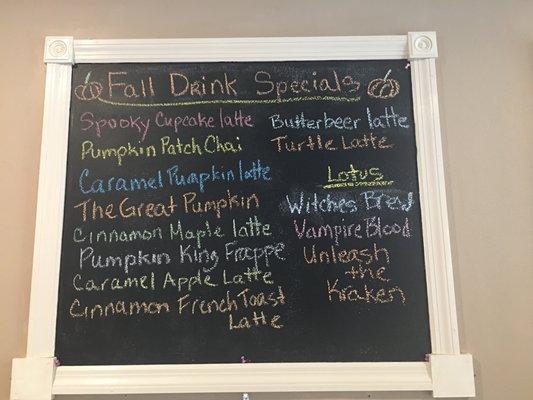 Fall Drink Specials
Spooky Cupcake latte
Pumpkin Patch Chai
Caramel Pumpkin latte
The Great Pumpkin
Cinnamon Maple latte
Pumpkin King Frappe
Caramel Apple Latte
Cinnamon French Toast
Latte
Butterbeer latte
Turtle Latte
Lotus
Witches Brew
Vampire Blood
Unleash
the
Kraken